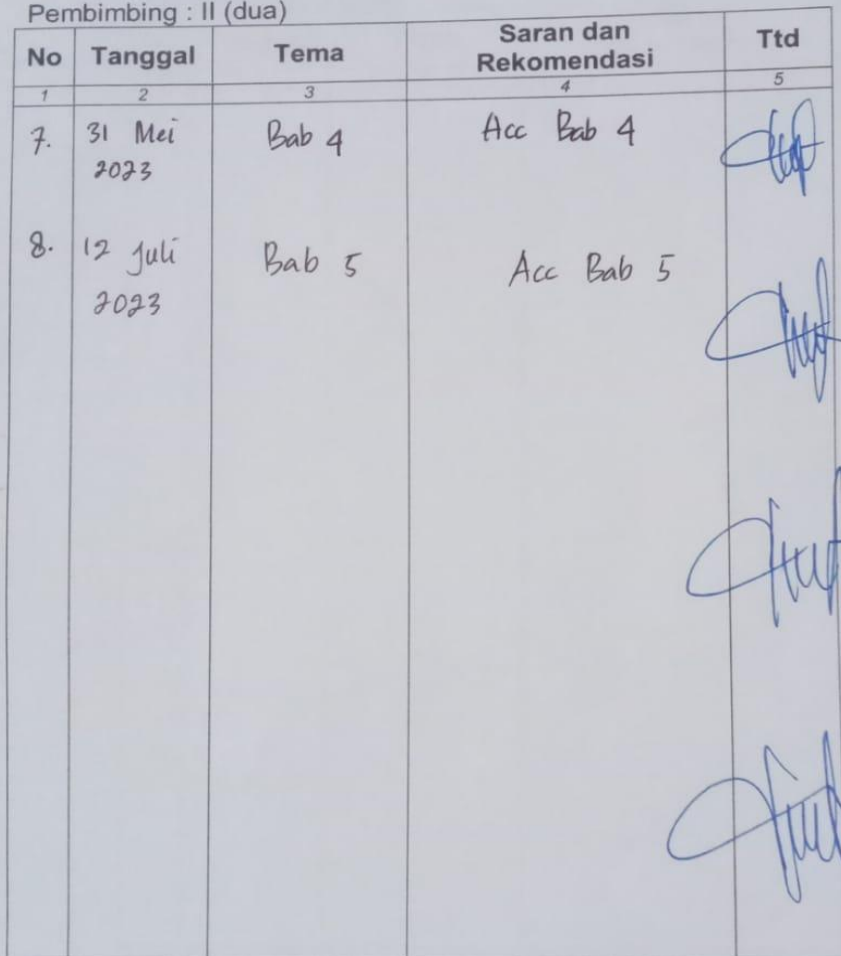 Pembimbing : II (dua)
No Tanggal Tema Saran dan Rekomendasi Ttd
1 2 3 4 5
7. 31 Mei 2023 Bab 4 Acc Bab 4
8. 12 Juli 2023 Bab 5 Acc Bab 5